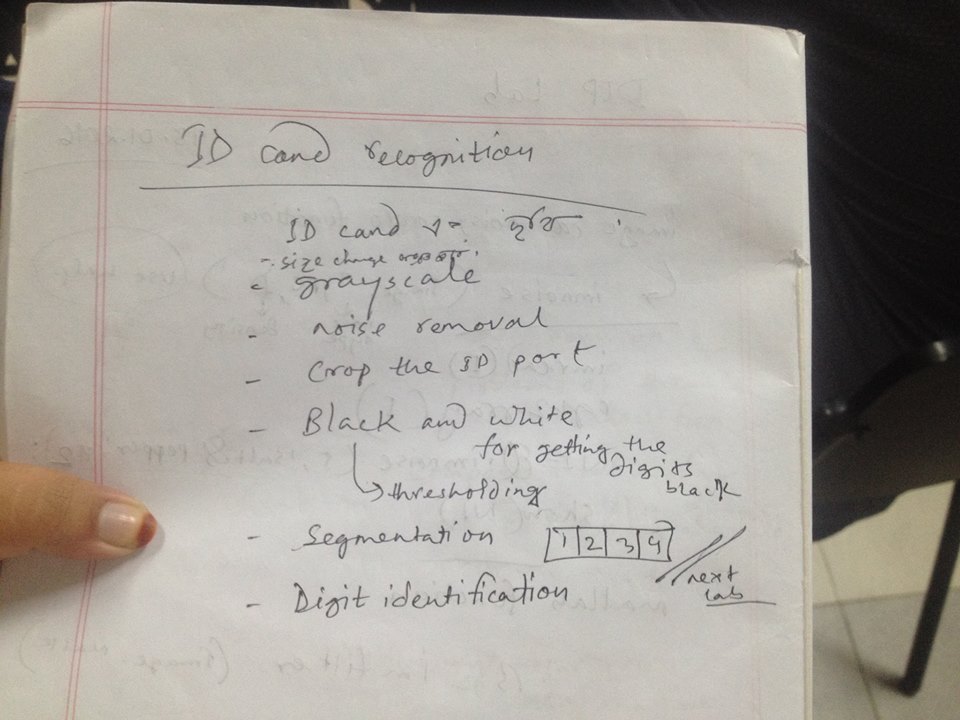 ID card recognition
ID card এর ছবি
- size change
- grayscale
- noise removal
- Crop the ID port
- Black and white
for getting the
digits
black
↳ thresholding
- Segmentation 1 2 3 4
- Digit identification
next
lab